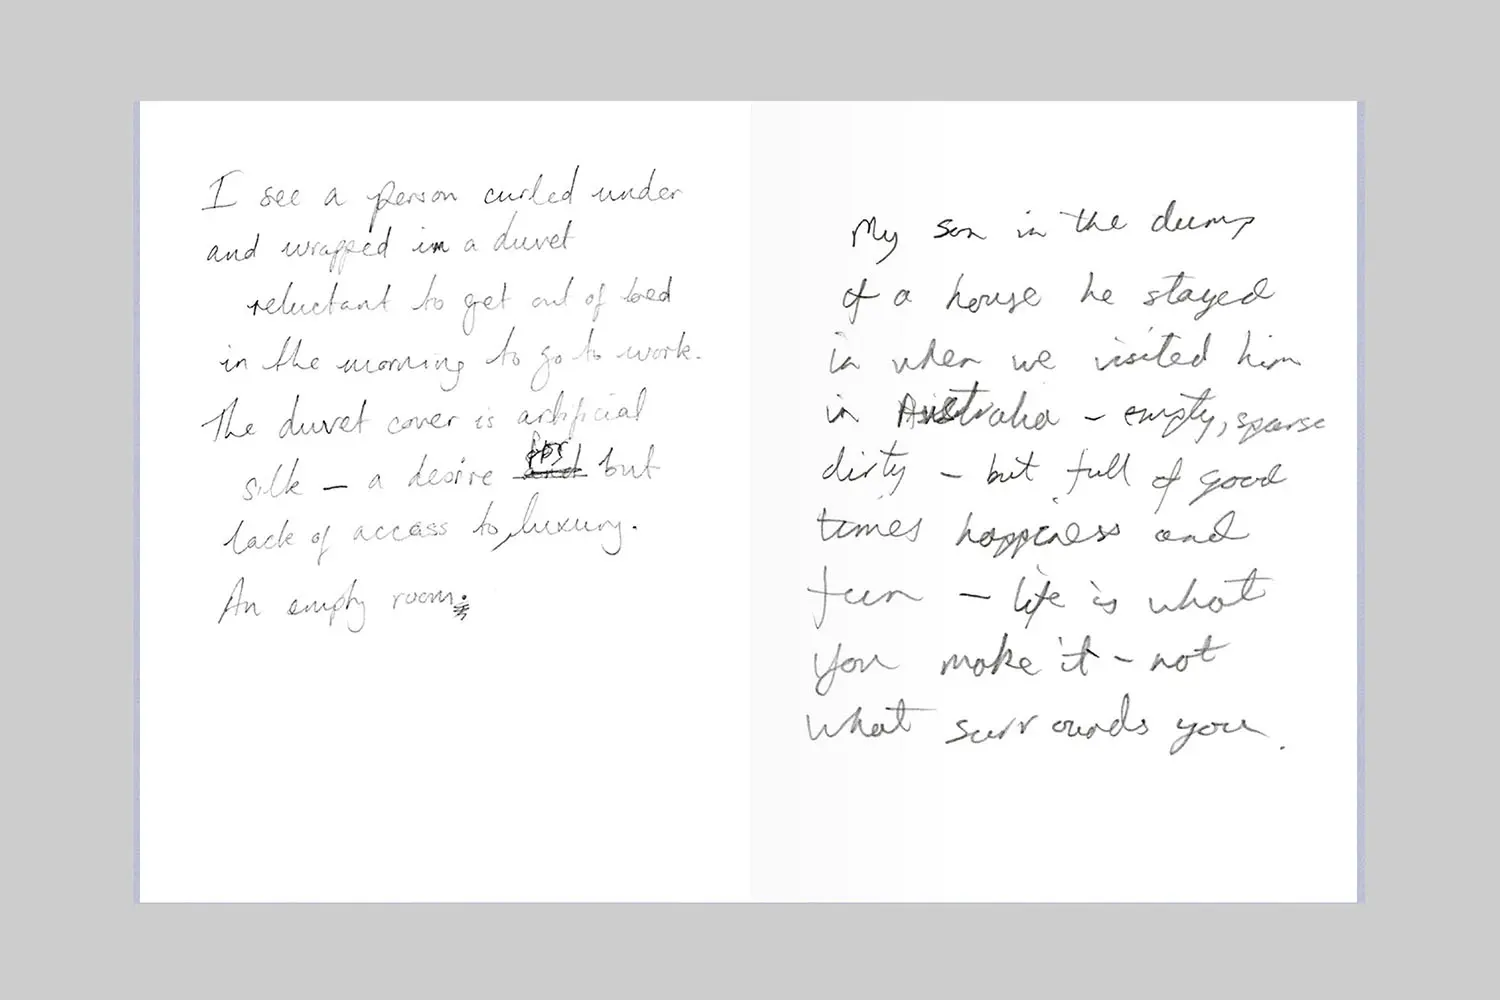 I see a person curled under
and wrapped in a duvet
reluctant to get out of bed
in the morning to go to work.
The duvet cover is artificial
silk – a desire for but
lack of access to, luxury.
An empty room.
My son in the dump
of a house he stayed
in when we visited him
in Australia – empty, sparse
dirty – but full of good
times happiness and
fun – life is what
you make it – not
what surrounds you.